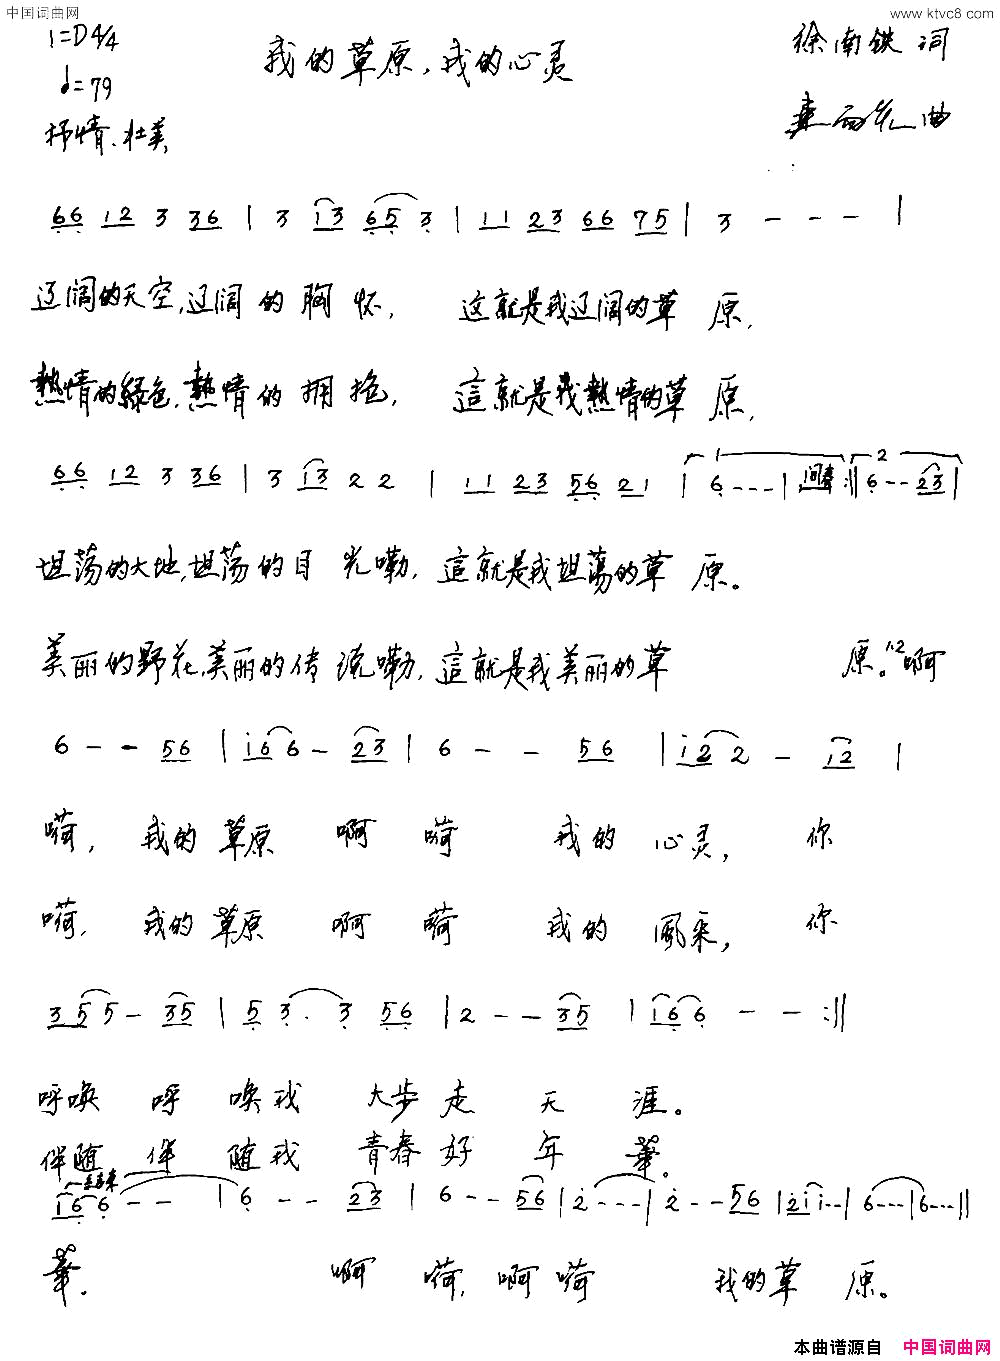 中国词曲网
www.ktvc8.com
1=D4/4
我的草原，我的心灵
徐南铁 词
♩=79
抒情、壮美
曲
66 12 3 36 | 3 13 65 3 | 11 23 66 75 | 3 - - - |
辽阔的天空，辽阔的胸怀，这就是我辽阔的草原，
熱情的綠色，熱情的拥抱，這就是我熱情的草原，
66 12 3 36 | 3 13 2 2 | 11 23 56 21 | 1 6 - - - | 间奏 :|| 2 6 - - 23 |
坦荡的大地，坦荡的目光嘞，這就是我坦荡的草原。
美丽的野花，美丽的传说嘞，這就是我美丽的草原。1.2 啊
6 - - 56 | i66 - 23 | 6 - - 56 | i22 - 12 |
嗬，我的草原 啊嗬 我的心灵，你
嗬，我的草原 啊嗬 我的風采，你
355 - 35 | 53 · 3 56 | 2 - - 35 | 166 - - :||
呼唤 呼唤我 大步走天涯。
伴随 伴随我 青春好年華。
166 - - | 6 - - 23 | 6 - - 56 | 2 - - - | 2 - - 56 | 2ii - - | 6 - - - | 6 - - - ||
華。 啊 嗬，啊嗬 我的草原。
本曲谱源自 中国词曲网